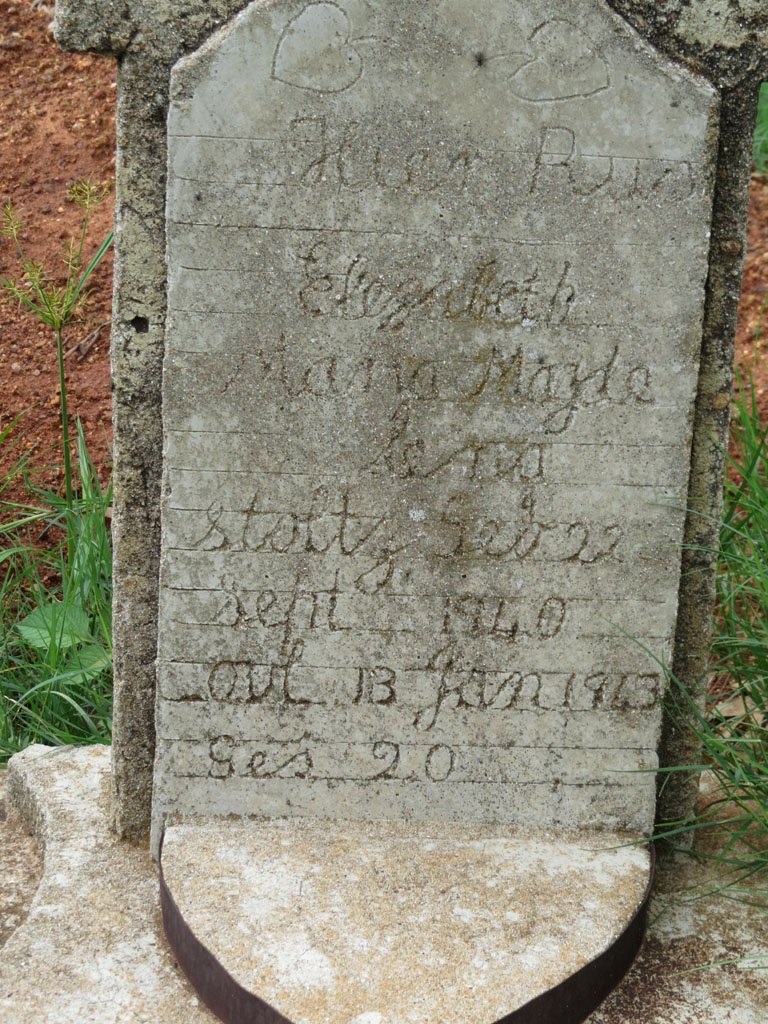 Hier Rus
Elezabeth
Maria Magda
lena
Stoltz Geb 22
Sept 1940
ovl 13 Jan 1943
Ges 20